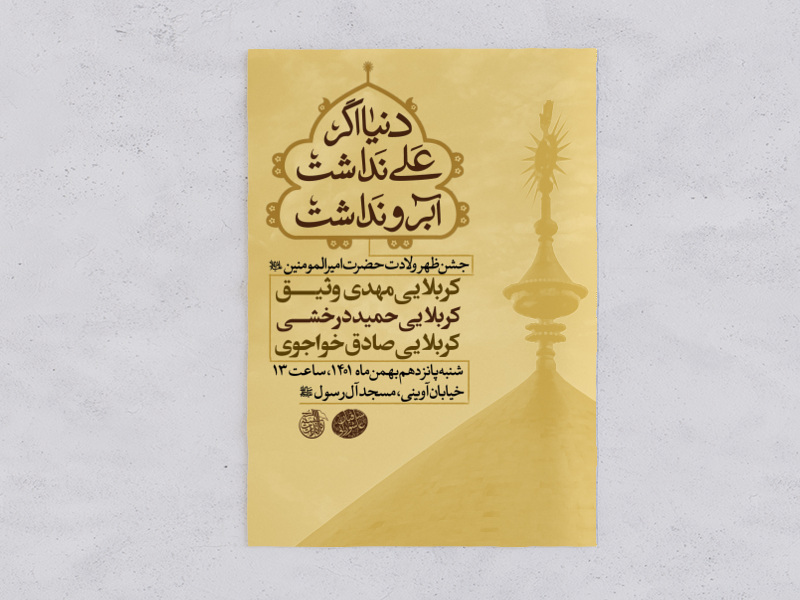 دنیا اگر
علی نداشت
آبرو نداشت
جشن ظهر ولادت حضرت امیرالمومنین
کربلایی مهدی وثیق
کربلایی حمید درخشی
کربلایی صادق خواجوی
شنبه پانزدهم بهمن ماه ۱۴۰۱، ساعت ۱۳
خیابان آوینی، مسجد آل رسول ﷺ